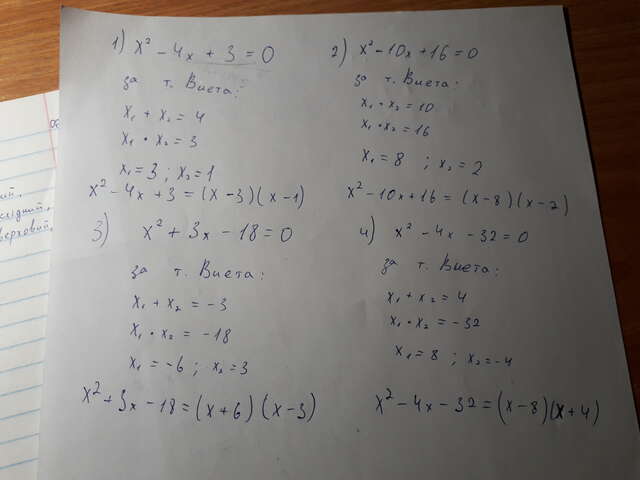 1) x² - 4x + 3 = 0
за т. Виета:
x₁ + x₂ = 4
x₁ • x₂ = 3
x₁ = 3 ; x₂ = 1
x² - 4x + 3 = (x - 3)(x - 1)
2) x² - 10x + 16 = 0
за т. Виета:
x₁ • x₂ = 10
x₁ • x₂ = 16
x₁ = 8 ; x₂ = 2
x² - 10x + 16 = (x - 8)(x - 2)
3) x² + 3x - 18 = 0
за т. Виета:
x₁ + x₂ = -3
x₁ • x₂ = -18
x₁ = -6 ; x₂ = 3
x² + 3x - 18 = (x + 6)(x - 3)
4) x² - 4x - 32 = 0
за т. Виета:
x₁ + x₂ = 4
x₁ • x₂ = -32
x₁ = 8 ; x₂ = -4
x² - 4x - 32 = (x - 8)(x + 4)